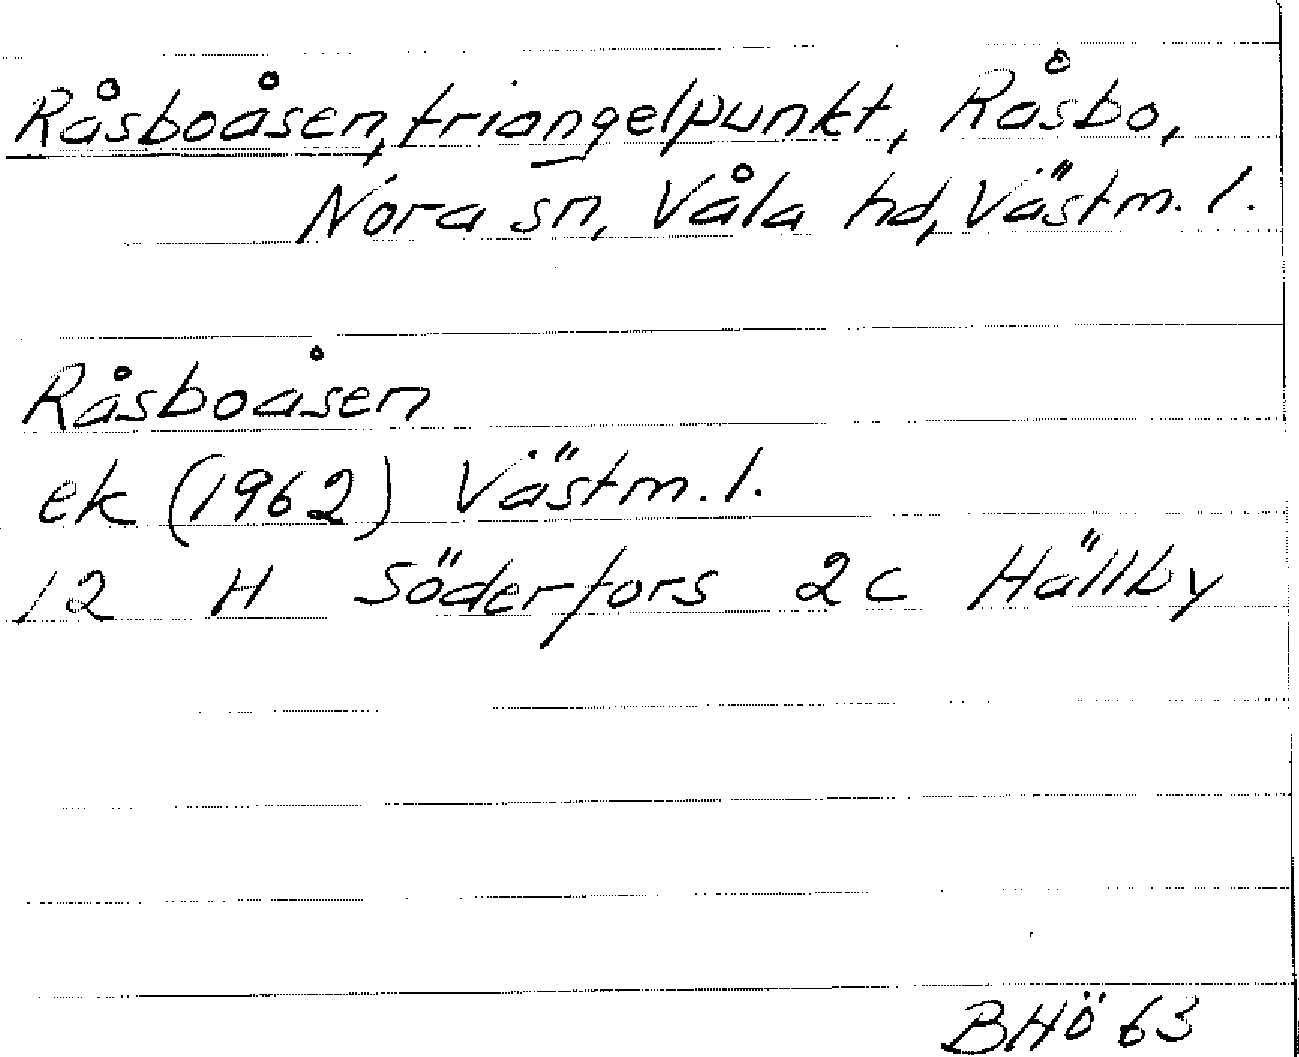 Råsboåsen, triangelpunkt, Råsbo,
Nora sn, Våla hd, Västm. l.
Råsboåsen
ek (1962) Västm. l.
12 H Söderfors 2c Hällby
BHö 63